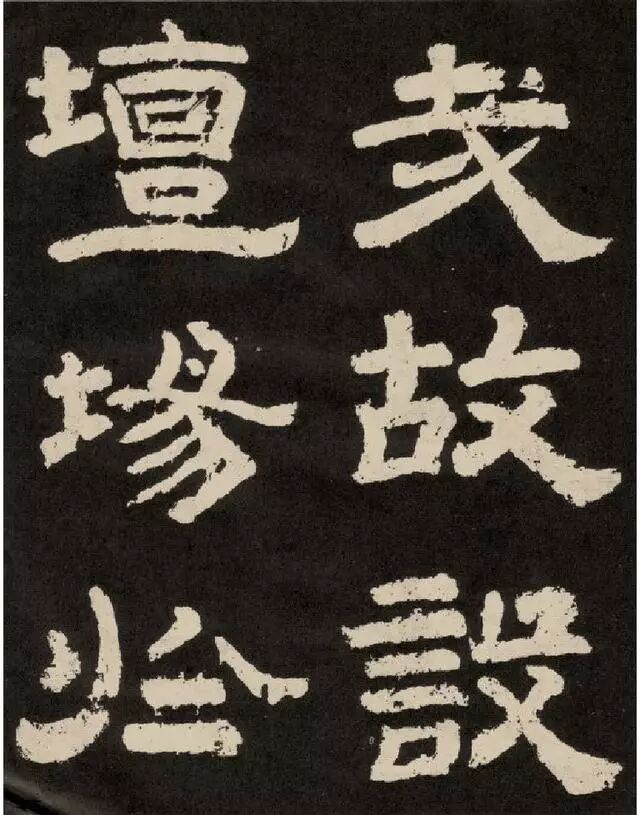 故設
壇場於